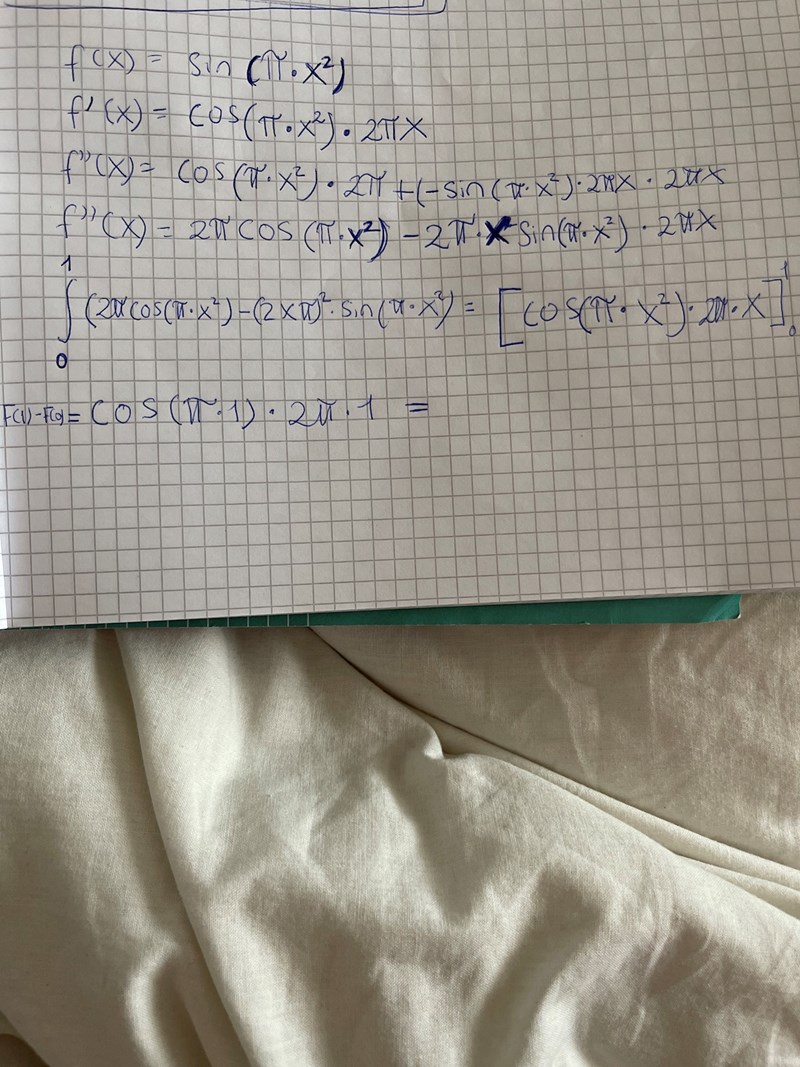 f(x) = sin(π·x²)
f'(x) = cos(π·x²)·2πx
f''(x) = cos(π·x²)·2π+(-sin(π·x²)·2πx·2πx
f''(x) = 2πcos(π·x²)-2π·x sin(π·x²)·2πx
∫₀¹(2πcos(π·x²)-(2xπ)²·sin(π·x²) = [cos(π·x²)·2π·x]₀¹
F(1)-F(0)= cos(π·1)·2π·1 =